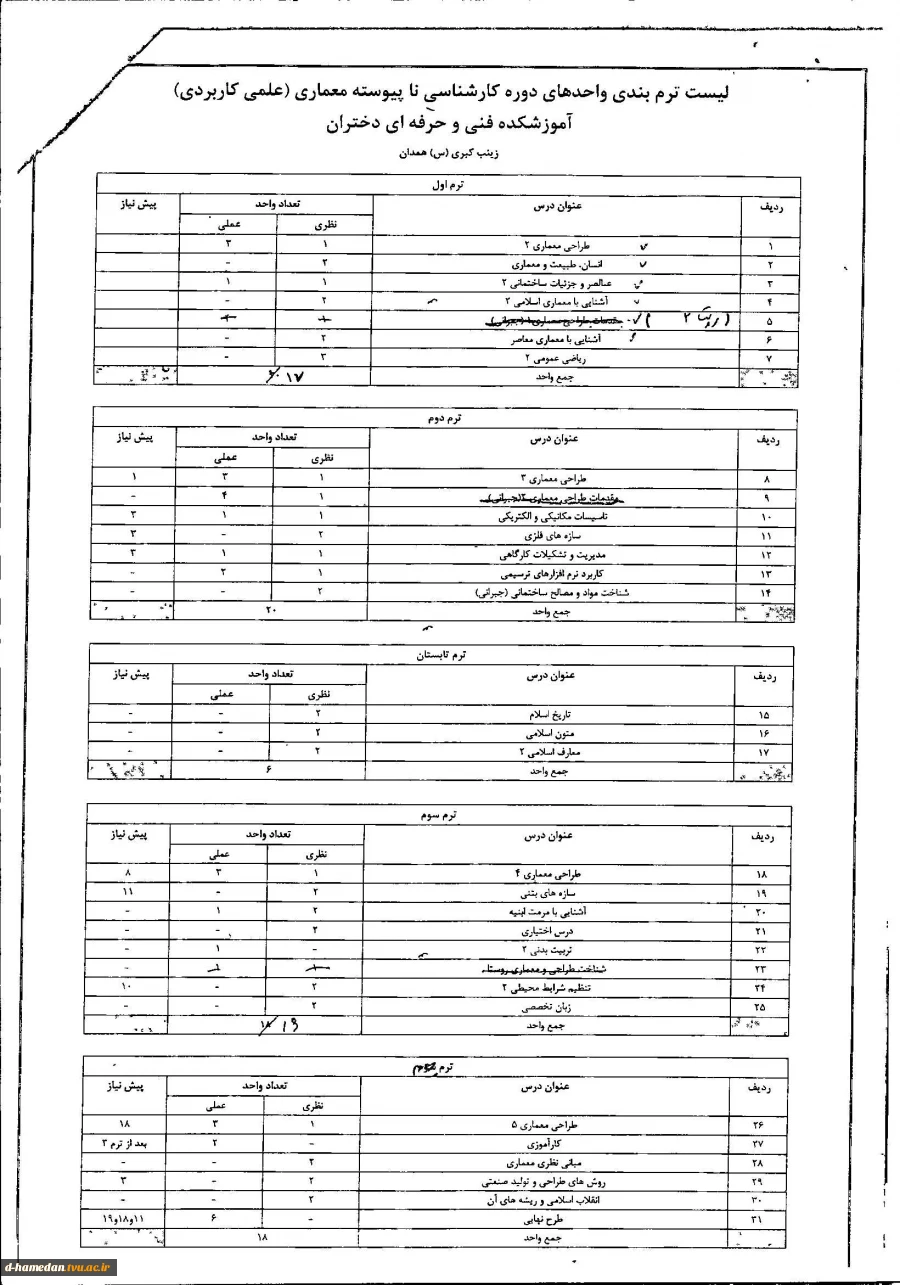 لیست ترم بندی واحدهای دوره کارشناسی نا پیوسته معماری (علمی کاربردی)
آموزشکده فنی و حرفه ای دختران
زینب کبری (س) همدان
ترم اول
ردیف عنوان درس تعداد واحد پیش نیاز
نظری عملی
۱ طراحی معماری ۲ ۱ ۳
۲ انسان، طبیعت و معماری ۲ -
۳ عناصر و جزئیات ساختمانی ۲ ۱ ۱
۴ آشنایی با معماری اسلامی ۲ ۲ -
۵ مقدمات طراحی معماری ۱ (جبرانی)
۶ آشنایی با معماری معاصر ۲ -
۷ ریاضی عمومی ۲ ۳ -
جمع واحد ۱۷
ترم دوم
ردیف عنوان درس تعداد واحد پیش نیاز
نظری عملی
۸ طراحی معماری ۳ ۱ ۳ ۱
۹ مقدمات طراحی معماری ۲ (جبرانی) ۱ ۴ -
۱۰ تاسیسات مکانیکی و الکتریکی ۱ ۱ ۳
۱۱ سازه های فلزی ۲ - ۳
۱۲ مدیریت و تشکیلات کارگاهی ۱ ۱ ۳
۱۳ کاربرد نرم افزارهای ترسیمی ۱ ۲ -
۱۴ شناخت مواد و مصالح ساختمانی (جبرانی) ۲ - -
جمع واحد ۲۰
ترم تابستان
ردیف عنوان درس تعداد واحد پیش نیاز
نظری عملی
۱۵ تاریخ اسلام ۲ - -
۱۶ متون اسلامی ۲ - -
۱۷ معارف اسلامی ۲ ۲ - -
جمع واحد ۶
ترم سوم
ردیف عنوان درس تعداد واحد پیش نیاز
نظری عملی
۱۸ طراحی معماری ۴ ۱ ۳ ۸
۱۹ سازه های بتنی ۲ - ۱۱
۲۰ آشنایی با مرمت ابنیه ۲ ۱ -
۲۱ درس اختیاری ۲ - -
۲۲ تربیت بدنی ۲ - ۱ -
۲۳ شناخت طراحی و معماری روستا ۱ ۱ -
۲۴ تنظیم شرایط محیطی ۲ ۲ - ۱۰
۲۵ زبان تخصصی ۲ - -
جمع واحد ۱۸ ۱۶
ترم
ردیف عنوان درس تعداد واحد پیش نیاز
نظری عملی
۲۶ طراحی معماری ۵ ۱ ۳ ۱۸
۲۷ کارآموزی - ۲ بعد از ترم ۳
۲۸ مبانی نظری معماری ۲ - -
۲۹ روش های طراحی و تولید صنعتی ۲ - ۳
۳۰ انقلاب اسلامی و ریشه های آن ۲ - -
۳۱ طرح نهایی - ۶ ۱۱و۱۸و۱۹
جمع واحد ۱۸
d-hamedan.tvu.ac.ir